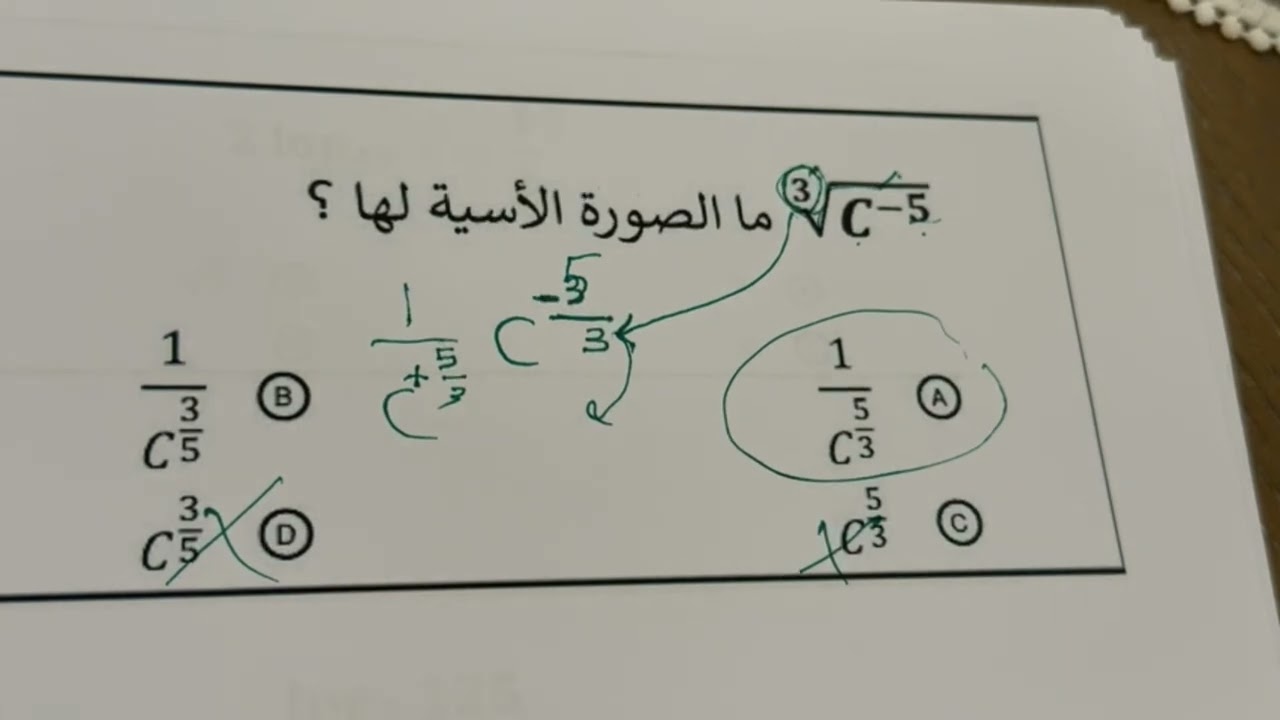 ∛C⁻⁵ ما الصورة الأسية لها ؟
C^(-5/3) 1/C^(+5/3)
A 1/C^(5/3)
B 1/C^(3/5)
C C^(5/3)
D C^(3/5)